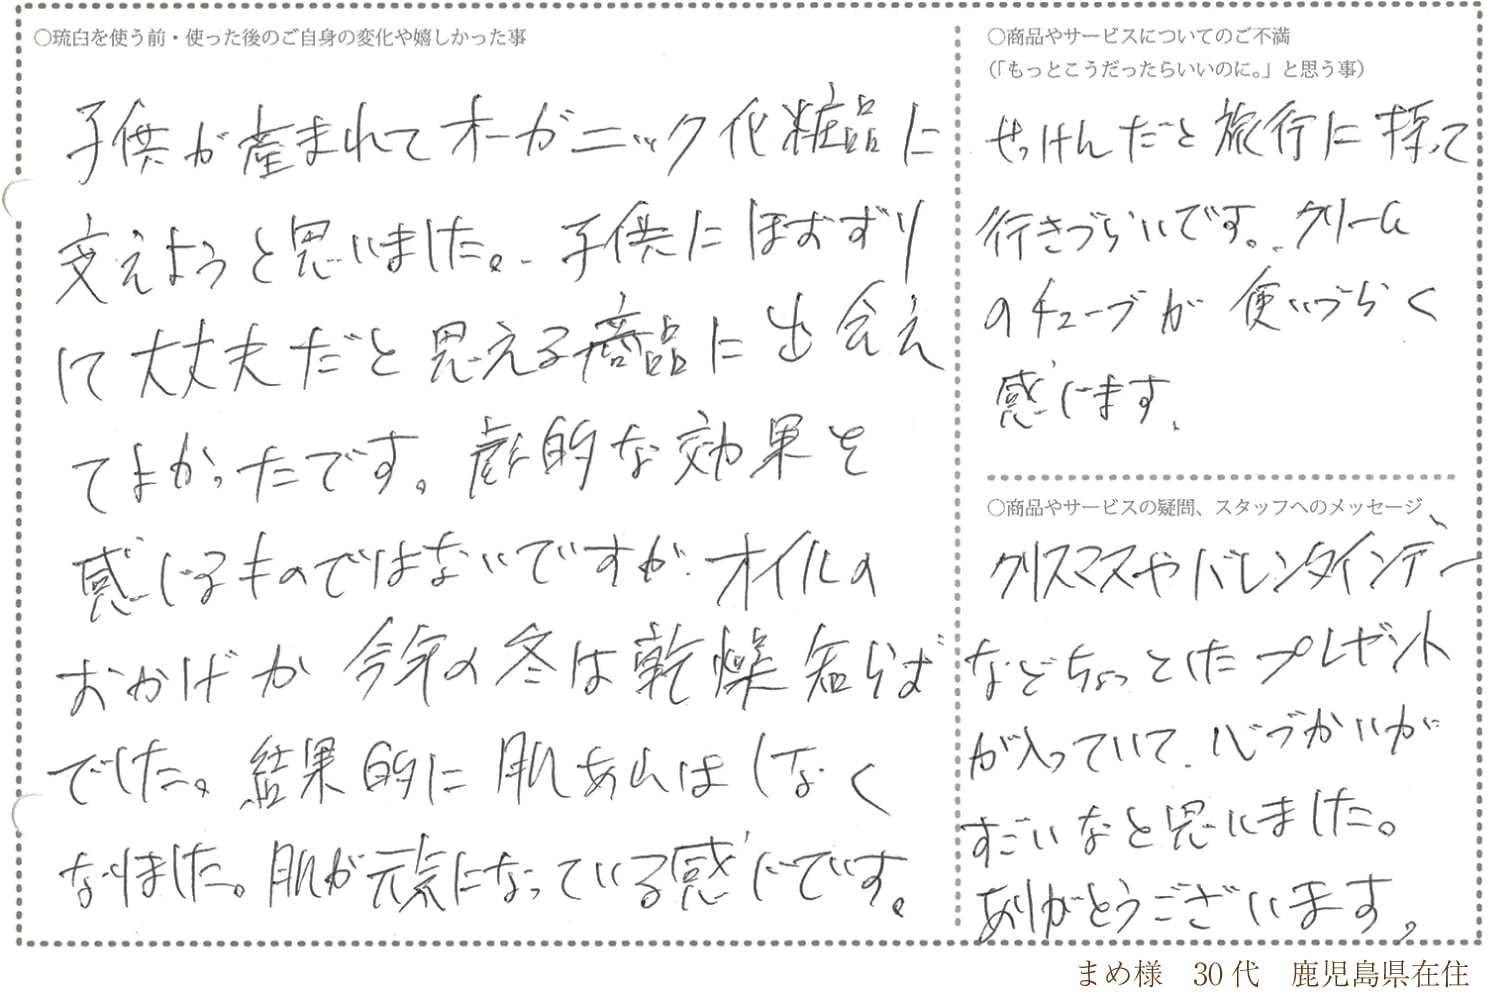 〇琉白を使う前・使った後のご自身の変化や嬉しかった事
子供が産まれてオーガニック化粧品に
変えようと思いました。子供にほおずり
して大丈夫だと思える商品に出会え
てよかったです。劇的な効果を
感じるものではないですが、オイルの
おかげか今年の冬は乾燥知らず
でした。結果的に肌あれはしなく
なりました。肌が元気になっている感じです。
〇商品やサービスについてのご不満
(「もっとこうだったらいいのに。」と思う事)
せっけんだと旅行に持って
行きづらいです。クリーム
のチューブが使いづらく
感じます。
〇商品やサービスの疑問、スタッフへのメッセージ
クリスマスやバレンタインデー
などちょっとしたプレゼント
が入っていて、心づかいが
すごいなと思いました。
ありがとうございます。
まめ様 30代 鹿児島県在住